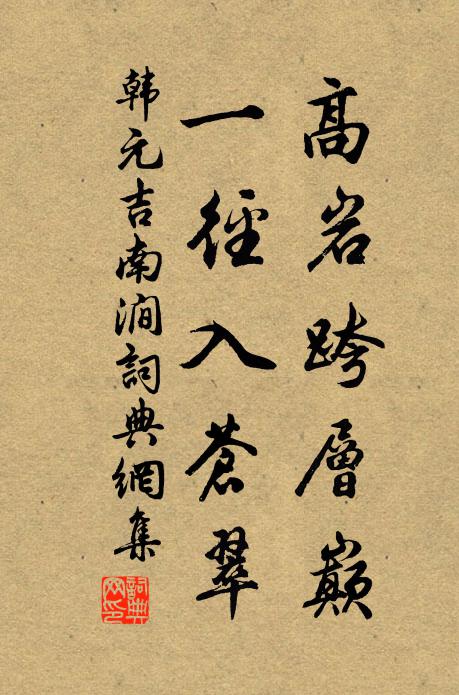 高岩跨層巔
一徑入蒼翠
韩元吉南澗詞典網集
詞典网印